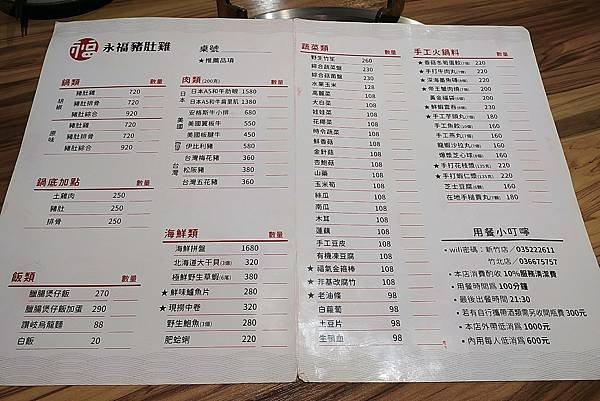 永福豬肚雞
桌號
★推薦品項
鍋類 數量
胡椒
豬肚雞 720
豬肚排骨 720
豬肚綜合 920
原味
豬肚雞 720
豬肚排骨 720
豬肚綜合 920
鍋底加點 數量
土雞肉 250
豬肚 250
排骨 250
飯類 數量
臘腸煲仔飯 270
臘腸煲仔飯加蛋 290
讚岐烏龍麵 88
白飯 20
肉類 (200克) 數量
日本
日本A5和牛肋眼 1580
日本A5和牛肩里肌 1380
美國
安格斯牛小排 680
美國翼板牛 550
美國板腱牛 450
伊比利豬 580
台灣
台灣梅花豬 360
松阪豬 380
台灣五花豬 360
海鮮類 數量
海鮮拼盤 1680
北海道大干貝(3個) 320
極鮮野生草蝦(6尾) 380
★ 鮮味鱸魚片 280
★ 現撈中卷 320
野生鮑魚(3個) 280
肥蛤蜊 220
蔬菜類 數量
野生竹笙 260
綜合蔬菜盤 230
綜合菇菌盤 230
水果玉米 128
高麗菜 108
大白菜 108
娃娃菜 108
花椰菜 108
時令蔬菜 108
鮮香菇 108
金針菇 108
杏鮑菇 108
山藥 108
玉米筍 108
絲瓜 108
南瓜 108
木耳 108
蓮藕 108
手工豆皮 108
有機凍豆腐 108
★ 福氣金箍棒 108
★ 非基改腐竹 108
★ 老油條 98
白蘿蔔 98
土豆片 98
生鴨血 98
手工火鍋料 數量
★香菇冬筍蛋餃(7個) 220
★手打牛肉丸(7個) 220
★深海墨魚磚(8個) 220
★帝王蟹肉燒(7個) 180
黃金福袋(4個) 180
★鮮蝦雲吞(6個) 180
★手工芋頭丸(7個) 180
手工魚餃(10個) 180
手工燕丸(7個) 180
龍蝦沙拉丸(7個) 180
爆漿芝心球(8個) 160
★手打花枝漿(135克) 220
★手打蝦仁漿(135克) 220
芝士豆腐(6個) 160
在地手槌貢丸(7顆) 180
用餐小叮嚀
•wifi密碼：新竹店／035222611
竹北店／036675757
•本店消費酌收 10%服務清潔費
•用餐時間為 100分鐘
•最後出餐時間 21:30
•若有自行攜帶酒類需另收開瓶費 300元
•本店外帶低消為 1000元
•內用每人低消為 600元